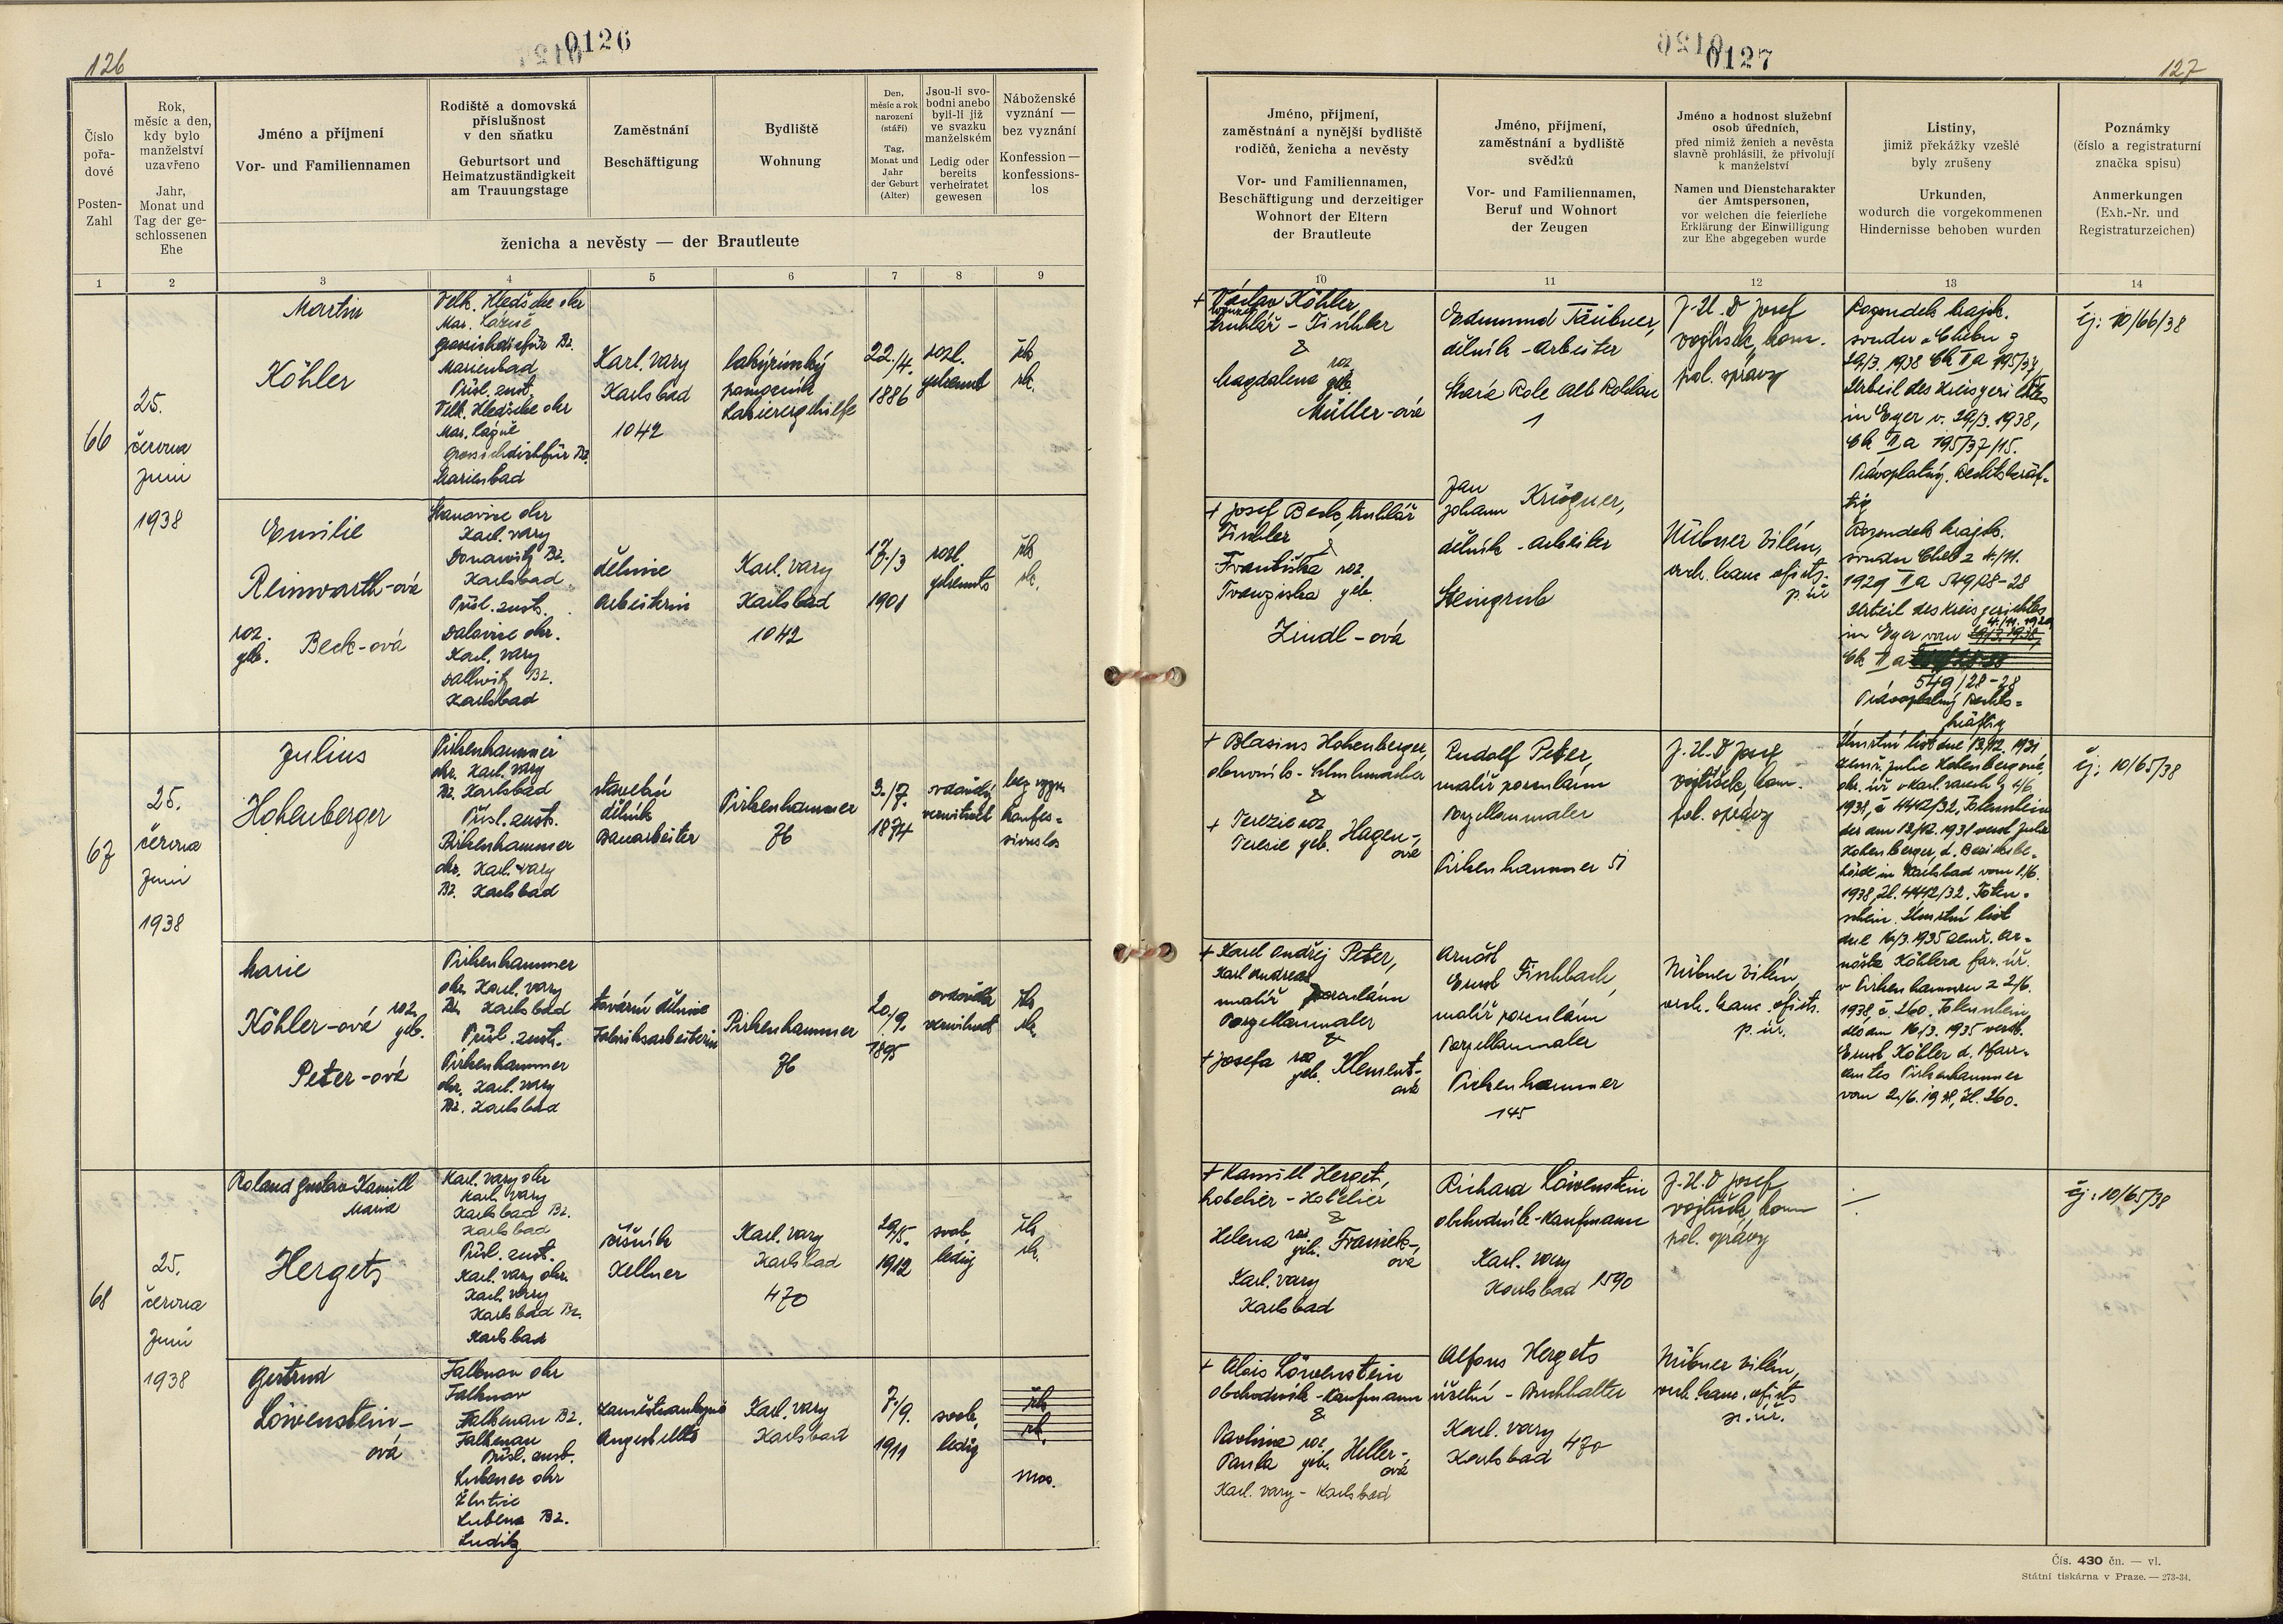 126
0126
Číslo
pořa-
dové
Posten-
Zahl
Rok,
měsíc a den,
kdy bylo
manželství
uzavřeno
Jahr,
Monat und
Tag der ge-
schlossenen
Ehe
Jméno a příjmení
Vor- und Familiennamen
Rodiště a domovská
příslušnost
v den sňatku
Geburtsort und
Heimatzuständigkeit
am Trauungstage
Zaměstnání
Beschäftigung
Bydliště
Wohnung
Den,
měsíc a rok
narození
(stáří)
Tag,
Monat und
Jahr
der Geburt
(Alter)
Jsou-li svo-
bodni anebo
byli-li již
ve svazku
manželském
Ledig oder
bereits
verheiratet
gewesen
Náboženské
vyznání —
bez vyznání
Konfession —
konfessions-
los
ženicha a nevěsty — der Brautleute
1 2 3 4 5 6 7 8 9
66
25.
června
Juni
1938
Martin
Köhler
Velk. Hledsebe okr
Mar. Lázně
Marienbad
Přísl. zust.
Velk. Hledsebe okr
Mar. Lázně
Marienbad
Karl. vary
Karlsbad
1042
lakýrnický
pomocník
Lakierergehilfe
22./4.
1886
rozl.
getrennt
řk
rk.
Emilie
Reinwarth-ová
roz.
geb. Beck-ová
Stanovice okr
Karl. vary
Donawitz Bz.
Karlsbad
Přísl. zust.
Dalovice okr.
Karl. vary
Dallwitz Bz.
Karlsbad
dělnice
Arbeiterin
Karl. vary
Karlsbad
1042
17./3
1901
rozl.
getrennt
řk
rk.
67
25.
června
Juni
1938
Julius
Hohenberger
Pirkenhammer
okr. Karl. vary
Bz. Karlsbad
Přísl. zust.
Pirkenhammer
okr. Karl. vary
Bz. Karlsbad
stavební
dělník
Bauarbeiter
Pirkenhammer
76
3./7.
1874
ovdovělý
verwitwet
bez vyzn.
konfes-
sionslos
Marie
Köhler-ová roz.
geb.
Peter-ová
Pirkenhammer
okr. Karl. vary
Bz. Karlsbad
Přísl. zust.
Pirkenhammer
okr. Karl. vary
Bz. Karlsbad
tovární dělnice
Fabriksarbeiterin
Pirkenhammer
76
20./9.
1895
ovdovělá
verwitwet
řk
rk.
68
25.
června
Juni
1938
Roland Gustav Kamill
Maria
Hergets
Karl. vary okr
Karl. vary
Karlsbad Bz.
Karlsbad
Přísl. zust.
Karl. vary okr.
Karl. vary
Karlsbad Bz.
Karlsbad
číšník
Kellner
Karl. vary
Karlsbad
470
29/5.
1912
svob.
ledig
řk
rk.
Gertrud
Löwenstein-
ová
Falknov okr
Falknov
Falkenau Bz.
Falkenau
Přísl. zust.
Lubenec okr
Žlutice
Lubenz Bz.
Luditz
zaměstnankyně
Angestellte
Karl. vary
Karlsbad
7./9.
1911
svob.
ledig
řk
rk.
mos.
0127
127
Jméno, příjmení,
zaměstnání a nynější bydliště
rodičů, ženicha a nevěsty
Vor- und Familiennamen,
Beschäftigung und derzeitiger
Wohnort der Eltern
der Brautleute
Jméno, příjmení,
zaměstnání a bydliště
svědků
Vor- und Familiennamen,
Beruf und Wohnort
der Zeugen
Jméno a hodnost služební
osob úředních,
před nimiž ženich a nevěsta
slavně prohlásili, že přivolují
k manželství
Namen und Dienstcharakter
der Amtspersonen,
vor welchen die feierliche
Erklärung der Einwilligung
zur Ehe abgegeben wurde
Listiny,
jimiž překážky vzešlé
byly zrušeny
Urkunden,
wodurch die vorgekommenen
Hindernisse behoben wurden
Poznámky
(číslo a registraturní
značka spisu)
Anmerkungen
(Exh.-Nr. und
Registraturzeichen)
10 11 12 13 14
+ Václav Köhler,
truhlář - Tischler
&
Magdalena roz.
geb.
Müller-ová
Edmund Täubner,
dělník - Arbeiter
Stará Role Alt Rohlau
1
J. U. D Josef
Vojtíšek, kom.
pol. správy
Rozsudek krajsk.
soudu v Chebu z
29/3. 1938 Ck II a 195/37
Urteil des Kreisgerichtes
in Eger v. 29/3. 1938,
Ck II a 195/37/15.
Právoplatný. Rechtskräf-
tig
čj: 10/66/38
+ Josef Beck, truhlář
Tischler
&
Františka roz.
Franziska geb.
Zindl-ová
Jan
Johann Krögner,
dělník - Arbeiter
Steingrub
Hübner Vilém,
vrch. kanc. ofists.
p. úř.
Rozsudek krajsk.
soudu Cheb z 4./11.
1929 II a 549/28-28
Urteil des Kreisgerichtes
4./11. 1929
in Eger vom 29/3. 1938,
Ck II a
549/28-28
Právoplatný Rechts-
kräftig
+ Blasius Hohenberger,
obuvník - Schuhmacher
&
+ Terezie roz.
Teresie geb. Hagen-
ová
Rudolf Peter,
malíř porculánu
Porzellanmaler
Pirkenhammer 51
J. U. D Josef
Vojtíšek, kom.
pol. správy
Úmrtní list dne 13/12. 1931
zemř. Julie Hohenbergrové,
okr. úř. v Karl. varech z 1/6
1938, č 4442/32. Totenschein
der am 13/12. 1931 verst. Julie
Hohenberger, d. Bezirksbe-
hörde in Karlsbad vom 1./6.
1938, Zl. 4442/32. Toten-
schein. Úmrtní list
dne 16/3. 1935 zemř. Ar-
nošta Köhlera far. úř.
v Pirkenhammeru z 2/6.
1938, č. 260. Totenschein
des am 16/3. 1935 verst.
Ernst Köhler d. Pfarr-
amtes Pirkenhammer
vom 2./6. 1938, Zl. 260.
čj: 10/65/38
+ Karel Ondřej Peter,
Karl Andreas
malíř porculánu
Porzellanmaler
&
+ Josefa roz.
geb. Klement-
ová
Arnošt
Ernst Fischbach,
malíř porculánu
Porzellanmaler
Pirkenhammer
145
Hübner Vilém,
vrch. kanc. ofists.
p. úř.
+ Kamill Herget,
hotelier - Hotelier
&
Helena roz.
geb. Franiek-
ová
Karl. vary
Karlsbad
Richard Löwenstein
obchodník - Kaufmann
Karl. vary
Karlsbad 1590
J. U. D Josef
Vojtíšek, kom
pol. správy
čj: 10/65/38
+ Alois Löwenstein
obchodník - Kaufmann
&
Pavlina roz.
Paula geb. Heller-
ová
Karl. vary - Karlsbad
Alfons Hergets
účetní - Buchhalter
Karl. vary
Karlsbad 470
Hübner Vilém,
vrch. kanc. ofists
p. úř.
Čís. 430 čn. — vl.
Státní tiskárna v Praze. — 273-34.